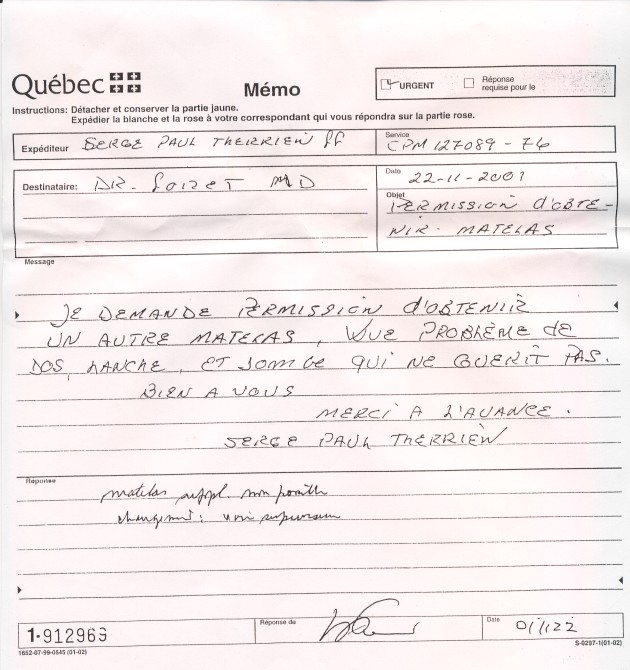 Québec
Mémo
URGENT
Réponse
requise pour le
Instructions: Détacher et conserver la partie jaune.
Expédier la blanche et la rose à votre correspondant qui vous répondra sur la partie rose.
Expéditeur SERGE PAUL THERRIEN
Service
CPM 127089-76
Destinataire: DR. MD
Date 22-11-2001
Objet
PERMISSION d'OBTE-
NIR- MATELAS
Message
JE DEMANDE PERMISSION d'OBTENIR
UN AUTRE MATELAS, VUE PROBLÈME de
DOS, HANCHE, ET JOMBE QUI NE GUERIT PAS.
BIEN A VOUS
MERCI A L'AVANCE.
SERGE PAUL THERRIEN
Réponse
matelas suppl. non possible
changement: voir superviseur
1-912963
Réponse de
Date 01/11/22
1652-07-99-0545 (01-02)
S-0297-1(01-02)